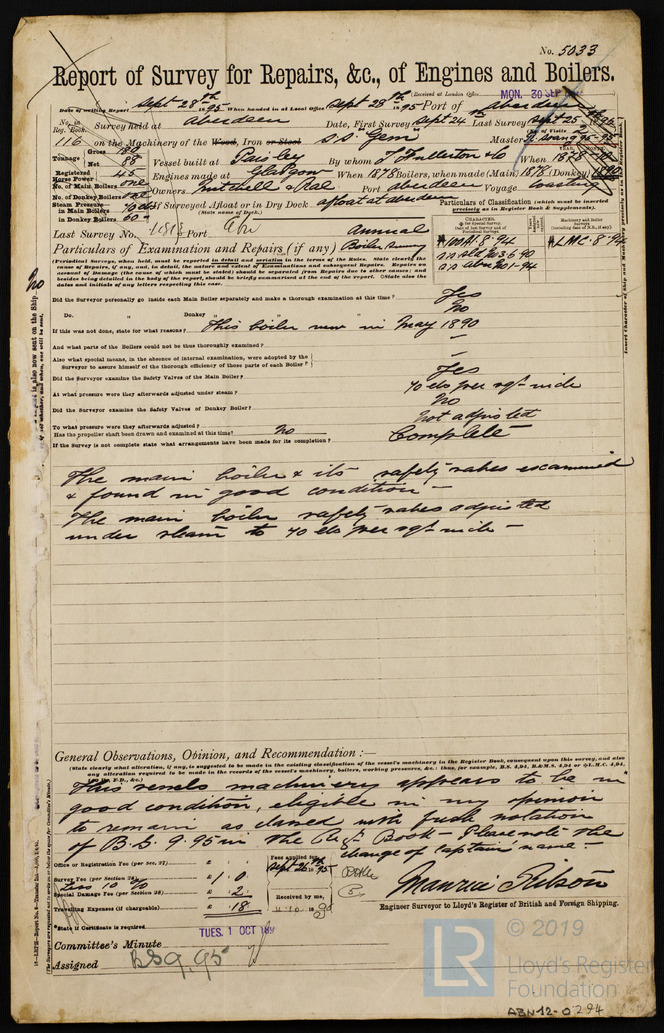 No. 5033
Report of Survey for Repairs, &c., of Engines and Boilers.
(Received at London Office MON. 30 SEP
Date of writing Report Sept 28th 1895 When handed in at Local Office Sept 28th 1895 Port of Aberdeen
No. in Reg. Book. Survey held at Aberdeen Date, First Survey Sept 24th Last Survey Sept 25
(No. of Visits 2
116 on the Machinery of the Wood, Iron or Steel S.S. "Gem" Master
Tonnage Gross Net 88 Vessel built at Paisley By whom J Fullerton & Co When 1878
Registered Horse Power 45 Engines made at Glasgow When 1878 Boilers, when made (Main) 1878 (Donkey) 1890
No. of Main Boilers one
No. of Donkey Boilers one Owners Mitchell & Rae Port Aberdeen Voyage Coasting
Steam Pressure in Main Boilers 70 lbs If Surveyed Afloat or in Dry Dock afloat at Aberdeen
in Donkey Boilers 60 (State name of Dock.)
Particulars of Classification (which must be inserted precisely as in Register Book & Supplements).
Last Survey No. Port Abn Annual
Particulars of Examination and Repairs (if any) Boiler Survey
(Periodical Surveys, when held, must be reported in detail and seriatim in the terms of the Rules. State clearly the
cause of Repairs, if any, and, in detail, the nature and extent of Examinations and subsequent Repairs. Repairs on
account of Damage (the cause of which must be stated) should be separated from Repairs due to other causes; and
besides being detailed in the body of the report, should be briefly summarised at the end of the report. State also the
dates and initials of any letters respecting this case.
LMC. 8-94
Did the Surveyor personally go inside each Main Boiler separately and make a thorough examination at this time? Yes
Do. " Donkey " " " No
If this was not done, state for what reasons? This boiler new in May 1890
And what parts of the Boilers could not be thus thoroughly examined? –
Also what special means, in the absence of internal examination, were adopted by the
Surveyor to assure himself of the thorough efficiency of those parts of each Boiler? –
Did the Surveyor examine the Safety Valves of the Main Boiler? Yes
At what pressure were they afterwards adjusted under steam? 70 lbs per sq. inch
Did the Surveyor examine the Safety Valves of Donkey Boiler? No
To what pressure were they afterwards adjusted? Not adjusted
Has the propeller shaft been drawn and examined at this time? No
If the Survey is not complete state what arrangements have been made for its completion? Complete
The main boiler & its safety valves examined
& found in good condition –
The main boiler safety valves adjusted
under steam to 70 lbs per sq. inch –
General Observations, Opinion, and Recommendation :—
(State clearly what alteration, if any, is suggested to be made in the existing classification of the vessel's machinery in the Register Book, consequent upon this survey, and also
any alteration required to be made in the records of the vessel's machinery, boilers, working pressures, &c.: thus, for example, B.S. 4,94, B.&M.S. 4,94 or L.M.C. 4,94,
This vessels machinery appears to be in
good condition, eligible in my opinion
to remain as classed with fresh notation
of B.S. 9.95 in the Regr. Book – Please note the
change of Captain's name –
Office or Registration Fee (per Sec. 27) £ : :
Survey Fee (per Section 28) £ 1 . 0 :
Less 10 %
Special Damage Fee (per Section 28) £ 2 .
Travelling Expenses (if chargeable) £ 18 .
Fees applied for,
Received by me,
Maurice Gibson
Engineer Surveyor to Lloyd's Register of British and Foreign Shipping.
State if Certificate is required
Committee's Minute TUES. 1 OCT 189
Assigned BS 9,95
© 2019
LR Lloyd's Register
Foundation
ABN12-0294